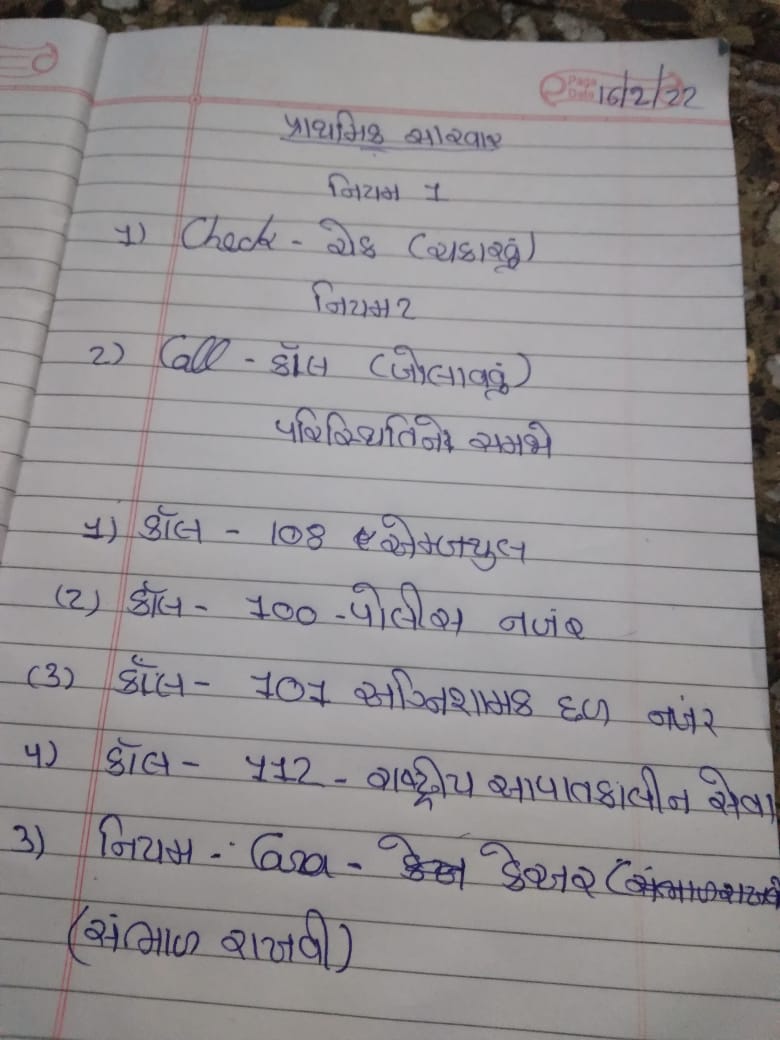 Page
Date 16/2/22
પ્રાથમિક સારવાર
નિયમ 1
1) Check - ચેક (ચકાસવું)
નિયમ 2
2) Call - કૉલ (બોલાવવું)
પરિસ્થિતિને સમજો
1) કૉલ - 108 એમ્બ્યુલ
(2) કૉલ - 100 - પોલીસ નબંર
(3) કૉલ - 101 અગ્નિશામક દળ નબંર
4) કૉલ - 112 - રાષ્ટ્રીય આપાતકાલીન સેવા
3) નિયમ - Care - કેઅર
(સંભાળ રાખવી)